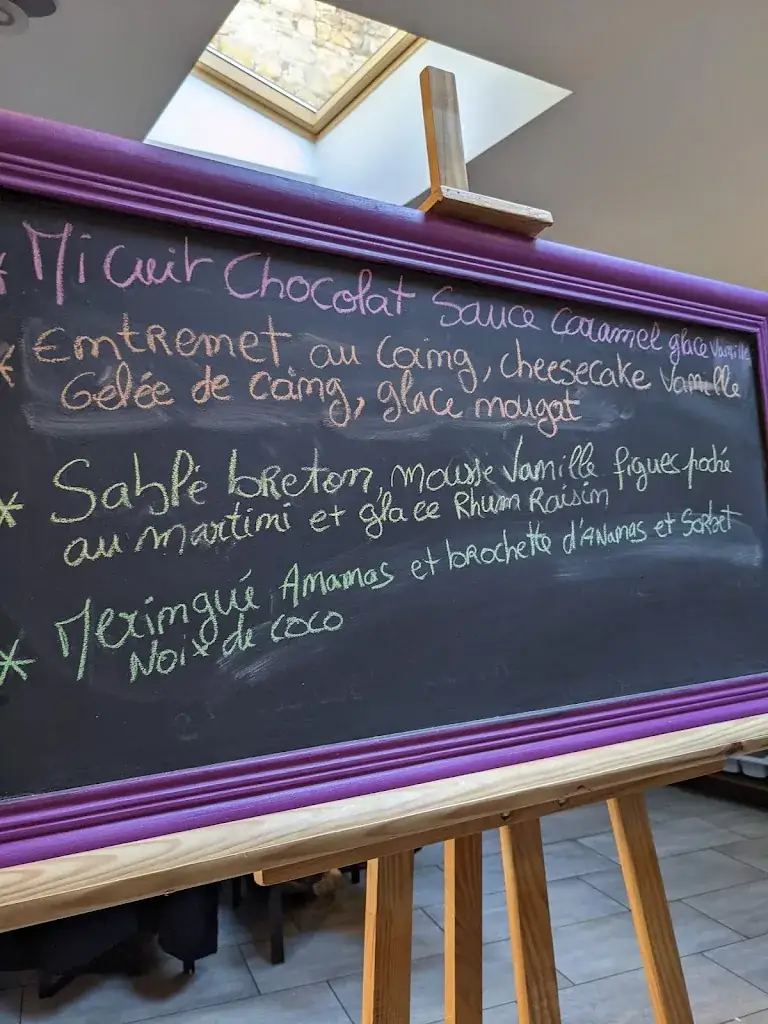 * Mi Cuit Chocolat Sauce Caramel glace Vanille
* Entremet au Coing, cheesecake Vanille
Gelée de Coing, glace nougat
* Sablé breton, mousse Vanille figues poché
au martini et glace Rhum Raisin
* Meringué Ananas et brochette d'Ananas et Sorbet
Noix de coco